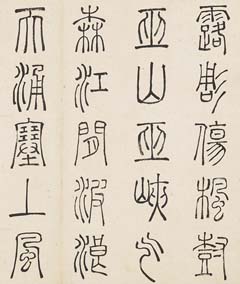 露彫傷楓樹
巫山巫峽气
森江閒波浪
天涌塞上風